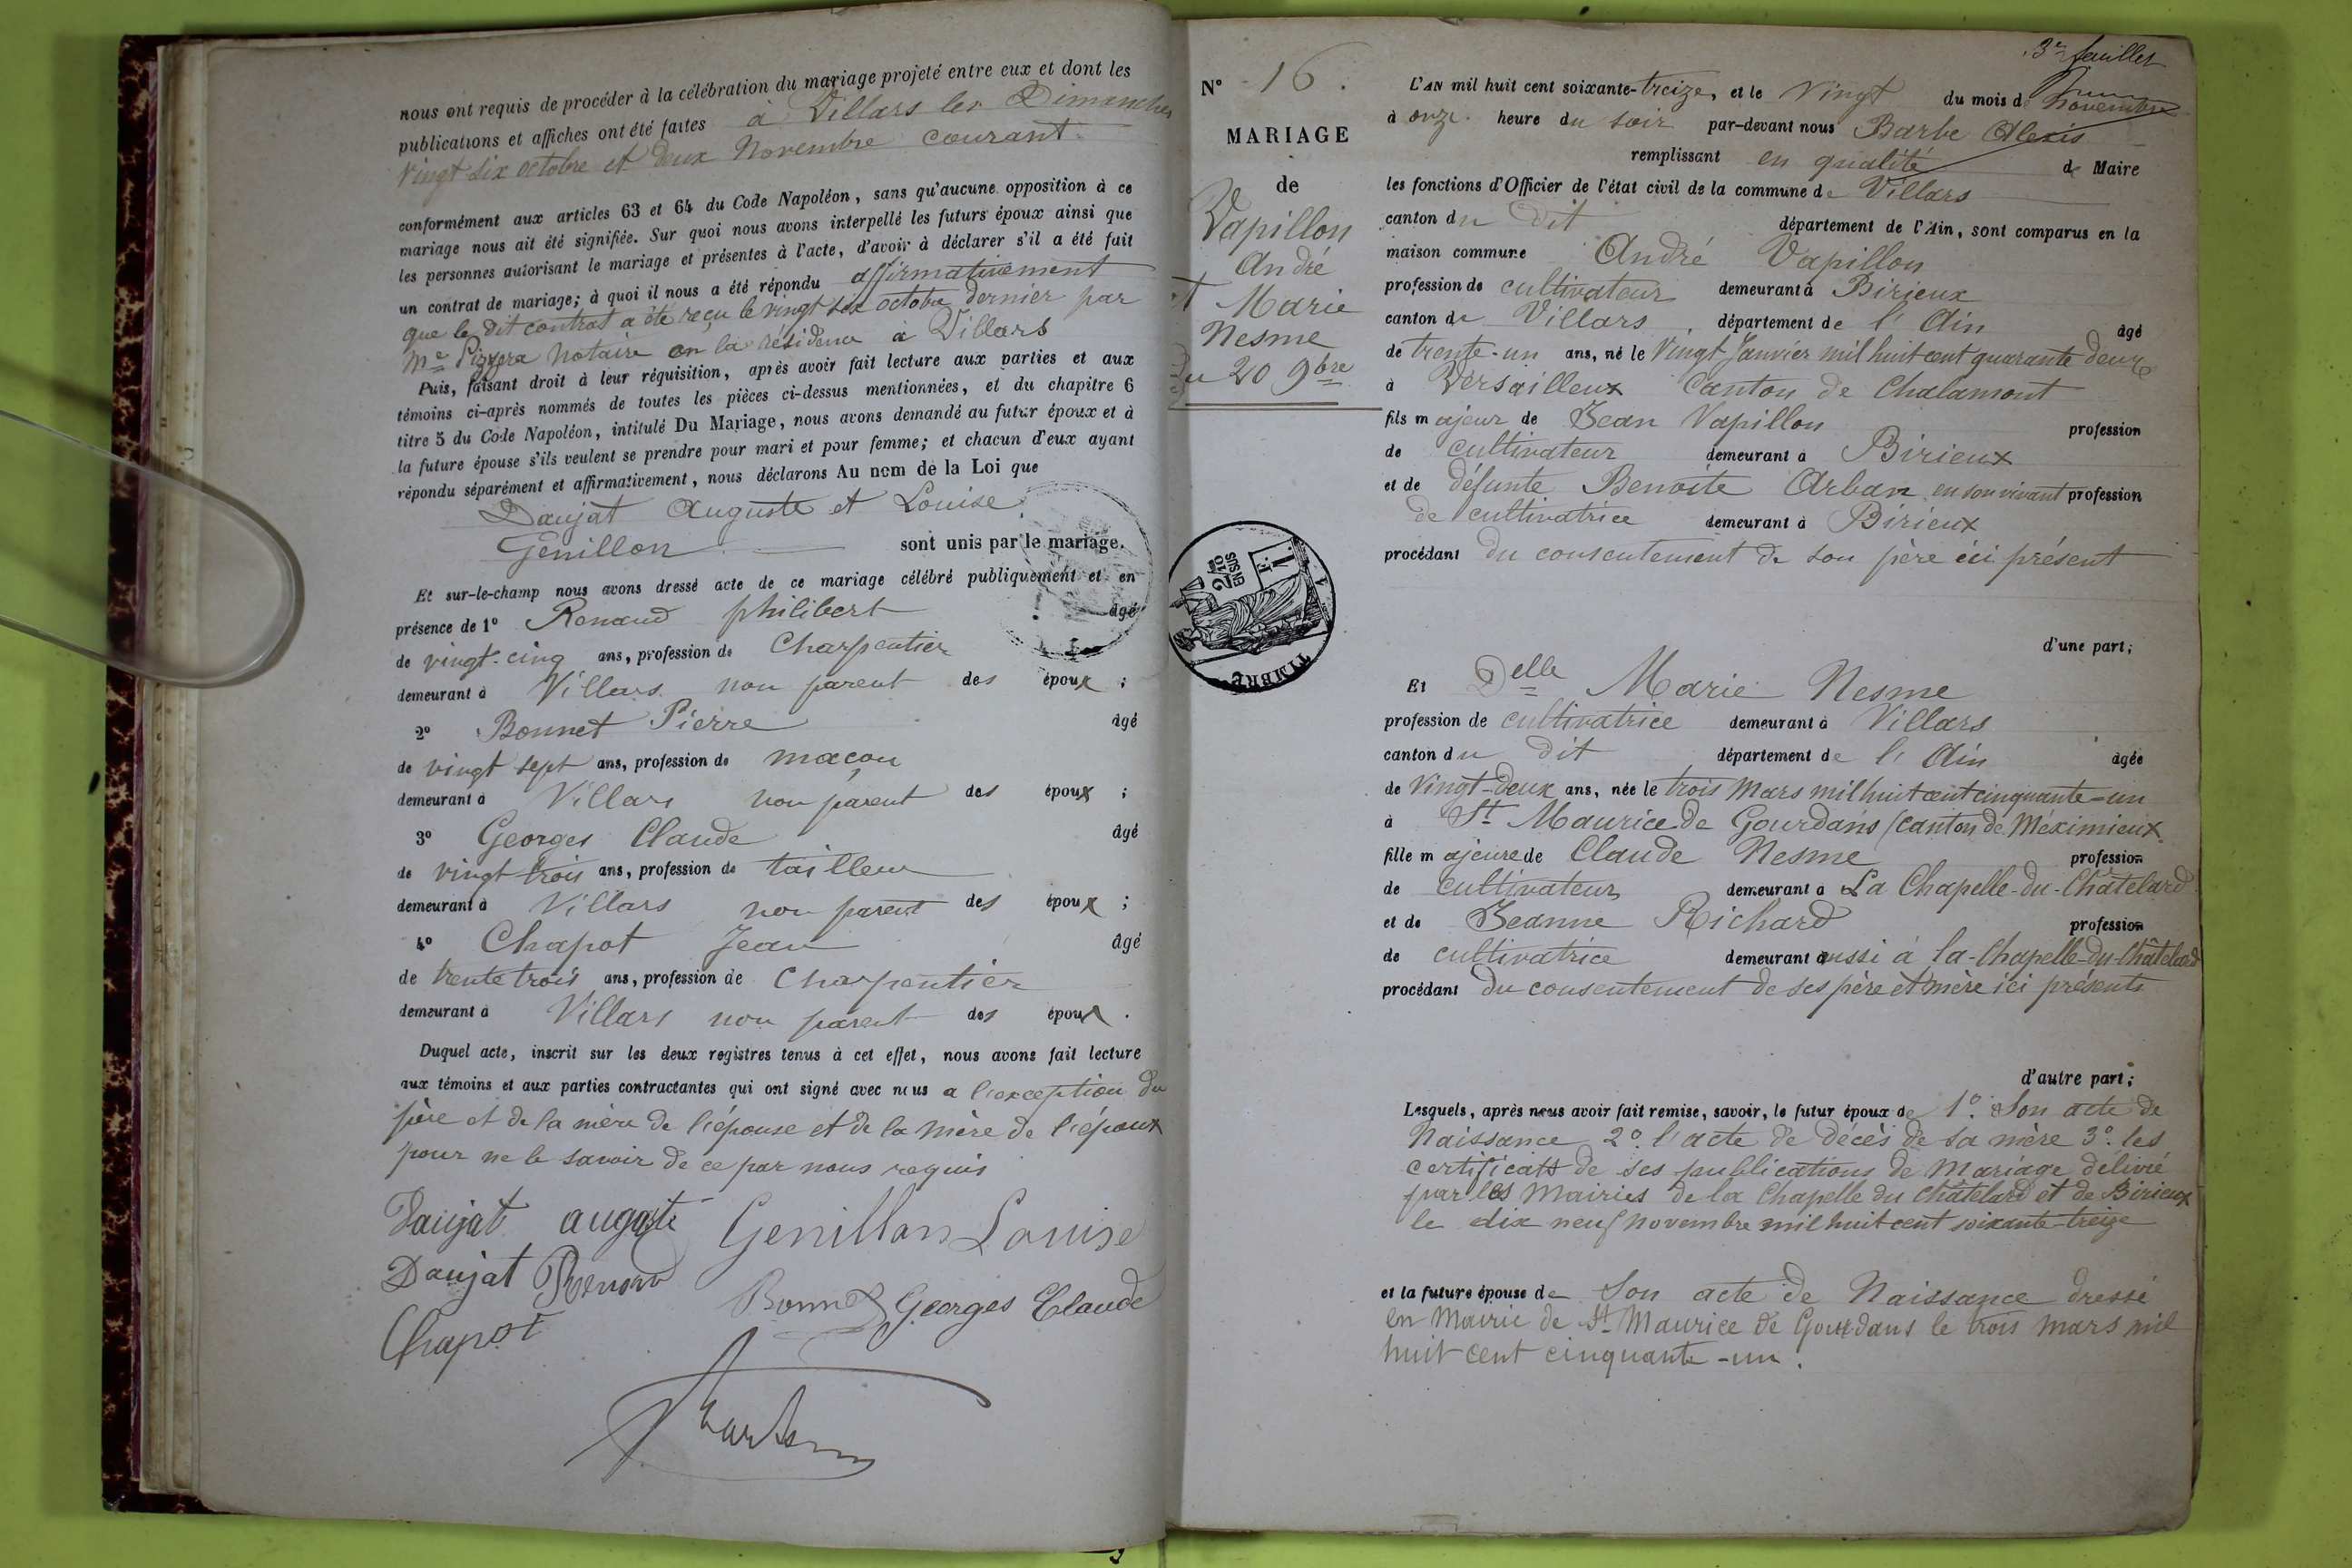 nous ont requis de procéder à la célébration du mariage projeté entre eux et dont les
publications et affiches ont été faites à Villars les Dimanches
vingt six octobre et deux Novembre courant
conformément aux articles 63 et 64 du Code Napoléon, sans qu'aucune opposition à ce
mariage nous ait été signifiée. Sur quoi nous avons interpellé les futurs époux ainsi que
les personnes autorisant le mariage et présentes à l'acte, d'avoir à déclarer s'il a été fait
un contrat de mariage; à quoi il nous a été répondu affirmativement
que le dit contrat a été reçu le vingt six octobre dernier par
Me Notaire en la résidence à Villars
Puis, faisant droit à leur réquisition, après avoir fait lecture aux parties et aux
témoins ci-après nommés de toutes les pièces ci-dessus mentionnées, et du chapitre 6
titre 5 du Code Napoléon, intitulé Du Mariage, nous avons demandé au futur époux et à
la future épouse s'ils veulent se prendre pour mari et pour femme; et chacun d'eux ayant
répondu séparément et affirmativement, nous déclarons Au nom de la Loi que
Daujat Auguste et Louise
Genillon sont unis par le mariage.
Et sur-le-champ nous avons dressé acte de ce mariage célébré publiquement et en
présence de 1° Renaud philibert âgé
de vingt-cinq ans, profession de Charpentier
demeurant à Villars non parent des époux ;
2° Bonnet Pierre âgé
de vingt sept ans, profession de maçon
demeurant à Villars non parent des époux ;
3° Georges Claude âgé
de vingt trois ans, profession de tailleur
demeurant à Villars non parent des époux ;
4° Chapot Jean âgé
de trente trois ans, profession de Charpentier
demeurant à Villars non parent des époux .
Duquel acte, inscrit sur les deux registres tenus à cet effet, nous avons fait lecture
aux témoins et aux parties contractantes qui ont signé avec nous a l'exception du
père et de la mère de l'épouse et de la mère de l'époux
pour ne le savoir de ce par nous requis
Daujat auguste Genillon Louise
Daujat Renaud
Bonnet Georges Claude
Chapot
3e feuillet
N° 16.
MARIAGE
de
Vapillon
André
et Marie
Nesme
Du 20 9bre
TIMBRE
2/10 EN SUS
L'AN mil huit cent soixante-treize, et le Vingt du mois de Novembre
à onze heure du soir par-devant nous Barbe Alexis
remplissant en qualité de Maire
les fonctions d'Officier de l'état civil de la commune de Villars
canton du Dit département de l'Ain, sont comparus en la
maison commune André Vapillon
profession de cultivateur demeurant à Birieux
canton de Villars, département de l'Ain âgé
de trente-un ans, né le Vingt Janvier mil huit cent quarante deux
à Versailleux Canton de Chalamont
fils majeur de Jean Vapillon profession
de cultivateur demeurant à Birieux
et de défunte Benoîte Arban en son vivant profession
de cultivatrice demeurant à Birieux
procédant du consentement de son père ici présent
d'une part;
Et Delle Marie Nesme
profession de cultivatrice demeurant à Villars
canton du dit département de l'Ain âgée
de Vingt-deux ans, née le trois Mars mil huit cent cinquante-un
à St Maurice de Gourdans (canton de Méximieux
fille majeure de Claude Nesme profession
de cultivateur demeurant à La Chapelle-du-Châtelard
et de Jeanne Richard profession
de cultivatrice demeurant aussi à la-Chapelle-du-Châtelard
procédant du consentement de ses père et mère ici présents
d'autre part;
Lesquels, après nous avoir fait remise, savoir, le futur époux de 1°. Son acte de
Naissance 2°. l'acte de décès de sa mère 3°. les
certificats de ses publications de Mariage délivré
par les Mairies de la Chapelle du Châtelard et de Birieux
le dix neuf novembre mil huit cent soixante-treize
et la future épouse de Son acte de Naissance dressé
en Mairie de St Maurice de Gourdans le trois mars mil
huit cent cinquante-un.